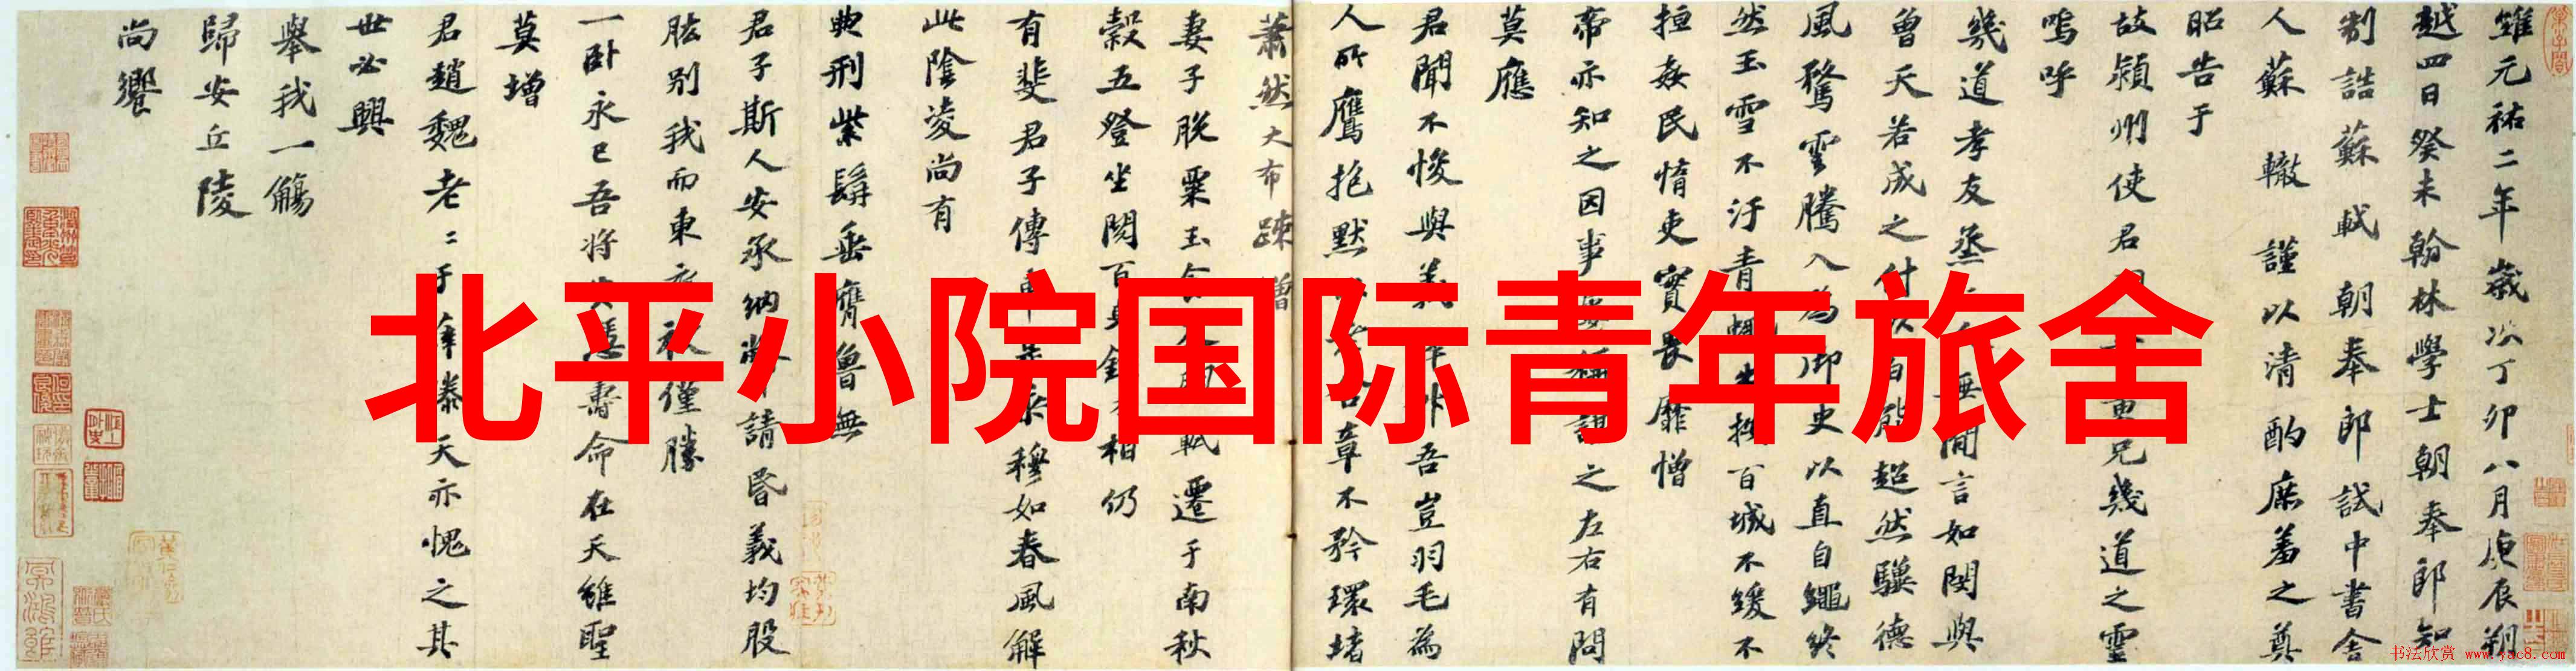 維元祐二年歲次丁卯八月庚辰朔
越四日癸未翰林學士朝奉郎知
制誥蘇軾朝奉郎試中書舍
人蘇轍謹以清酌庶羞之奠
昭告于
故潁州使君同年黃兄幾道之靈
嗚呼
幾道孝友烝烝人無間言如閔與
曾天若成之付以百能超然驥德
風騖雲騰入為御史以直自繩終
然玉雪不汙青蠅出按百城不緩不
捶姦民惰吏實畏靡憎
帝亦知之因事屢稱謀之左右有問
莫應
君聞不悛與義降升吾豈羽毛為
人所鷹抱默以老終章不矜環堵
蕭然大布疎繒
妻子脫粟玉食
軾遷于南秋
穀五登坐閱百
相仍
有斐君子傳車是乘穆如春風解
此陰凌尚有
典刑紫髯垂膺魯無
君子斯人安承納幣請昏義均股
肱別我而東衣袂僅勝
一卧永已吾將安憑壽命在天雖聖
莫增
君趙魏老二于薛滕天亦愧之其
世必興
舉我一觴
歸安丘陵
尚饗
北平小院国际青年旅舍
书法欣赏 www.yac8.com